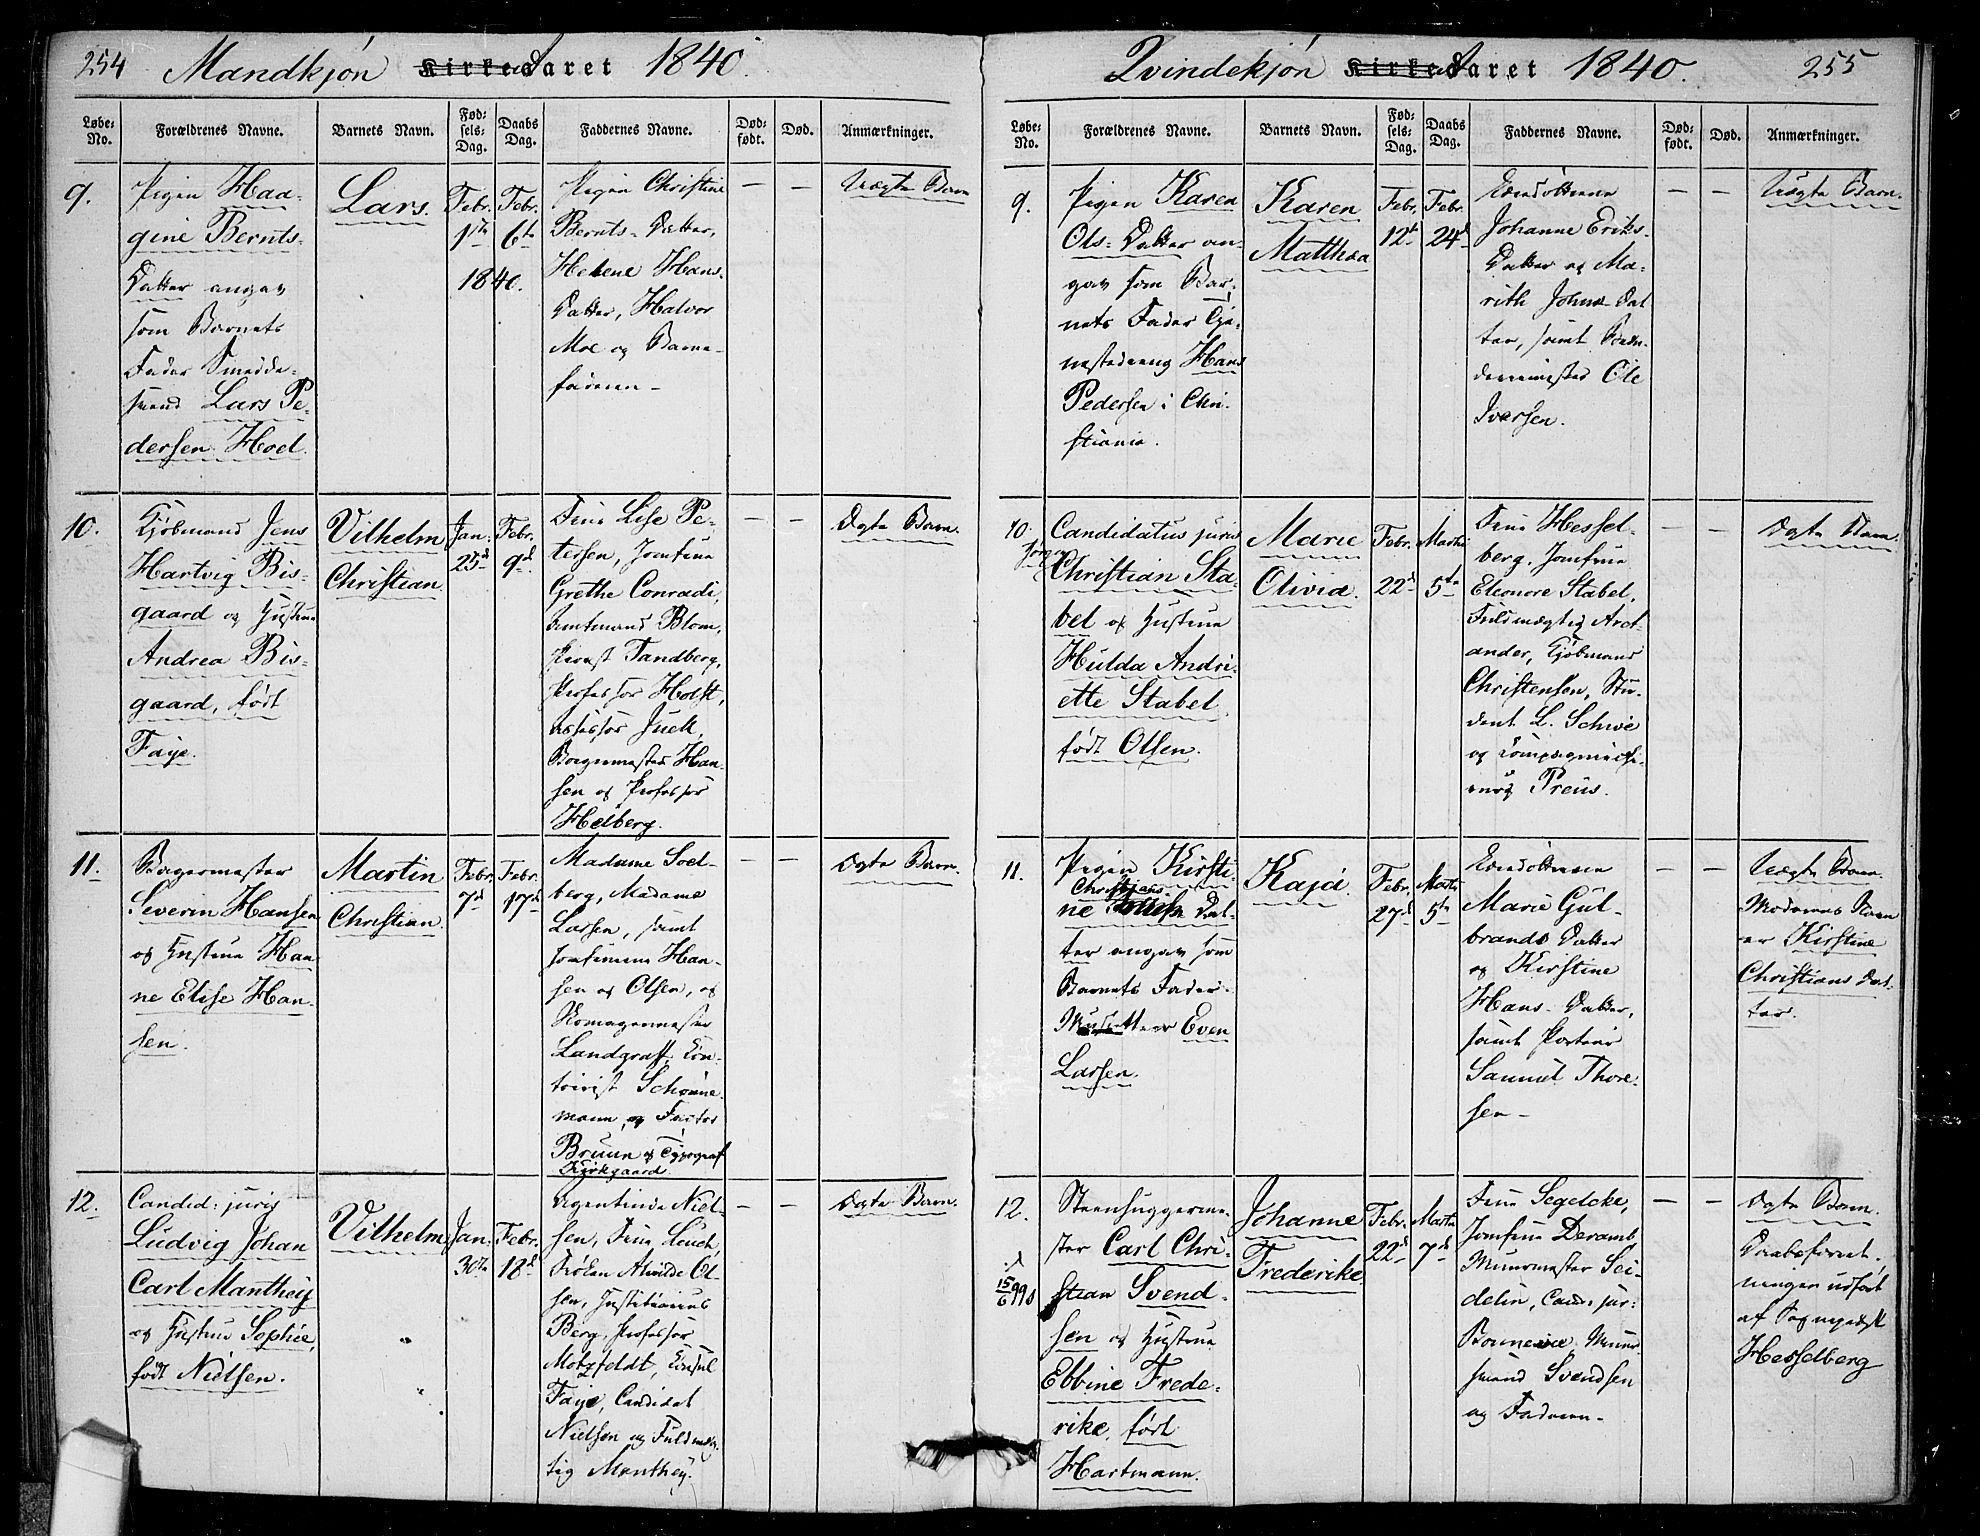 254 Mandkjøn Kirke Aaret 1840.
Løbe-No. Forældrenes Navne. Barnets Navn. Fødsels-Dag. Daabs Dag. Faddernes Navne. Dødfødt. Død. Anmærkninger.
9.
Pigen Haa-
gine Bernts-
Datter angav
som Barnets
Fader Smedde-
svend Lars Pe-
dersen Hoel.
Lars.
Febr. 1ste
Febr. 6te
1840.
Pigen Christine
Bernts-Datter,
Helene Hans-
Datter, Halvor
Moe og Barne-
faderen -
— —
Uægte Barn
10.
Kjøbmand Jens
Hartvig Bis-
gaard og Hustrue
Andrea Bis-
gaard, født
Faye.
Vilhelm
Christian.
Jan. 25d
Febr. 9d
Frue Lise Pe-
tersen, Jomfrue
Grethe Conradi,
Amtmand Blom,
Provst Tandberg,
Professor Holst,
Assessor Juell,
Borgermester Han-
sen og Professor
Heiberg.
— —
Ægte Barn.
11.
Bagermester
Severin Hansen
og Hustrue Han-
ne Elise Han-
sen.
Martin
Christian.
Febr. 7d
Febr. 17de
Madame Soel-
berg, Madame
Larsen, samt
Jomfruerne Han-
sen og Olsen, og
Skomagermester
Landgraff, Con-
torist Schöne-
mann, og Factor
Bruun og Typograf
Kirkgaard.
— —
Ægte Barn.
12.
Candid: juris
Ludvig Johan
Carl Manthey
og Hustrue Sophie,
født Nielsen.
Vilhelm
Jan. 30te
Febr. 18d
Agentinde Niel-
sen, Frue Leuch,
Frøken Alvilde Ol-
sen, Institutions
Berg, Professor
Motzfeldt, Consul
Faye, Candidat
Nielsen og Fuldmæg-
tig Manthey.
— —
Ægte Barn.
Qvindekjøn Kirke Aaret 1840. 255
Løbe-No. Forældrenes Navne. Barnets Navn. Fødsels-Dag. Daabs Dag. Faddernes Navne. Dødfødt. Død. Anmærkninger.
9.
Pigen Karen
Ols-Datter an-
gav som Bar-
nets Fader Tje-
nestedreng Hans
Pedersen i Chri-
stiania.
Karen
Matthea
Febr. 12te
Febr. 24d
Johanne Eriks-
Datter og Ma-
rith Johns-Dat
ter, samt
Ole
Iversen.
— —
Uægte Barn.
10.
Candidatus juris
Jørgen
Christian Sta-
bel og Hustrue
Hulda Andri-
ette Stabel
født Olsen.
Marie
Olivia.
Febr. 22d
Marts 5te
Frue Hessel-
berg, Jomfrue
Eleonore Stabel,
Fuldmægtig Arct-
ander, Kjøbmand
Christensen, Stu-
dent L. Schive
og Compagniechi-
rurg Preus.
— —
Ægte Barn.
11.
Pigen Kirsti-
Christians
ne Dat-
ter angav som
Barnets Fader
Musketteer Even
Larsen.
Kaja.
Febr. 27d
Marts 5te
Marie Gul-
brands Datter
og Kirstine
Hans-Datter,
samt Porteur
Samuel Thore-
sen -
— —
Uægte Barn.
Moderens Navn
er Kirstine
Christians Dat-
ter.
12.
15/6 99
Steenhuggerme-
ster Carl Chri-
stian Svend-
sen og Hustrue
Ebbine Frede-
rike, født
Hartmann.
Johanne
Frederike
Febr. 22d
Marts 7de
Frue Segelcke,
Jomfrue Deramb,
Muurmester Sei-
delin, Cand: jur:
Bonnevie, Muur-
svend Svendsen
og Faderen -
— —
Ægte Barn.
Daabsforret-
ningen udført
af Sognepræst
Hesselberg